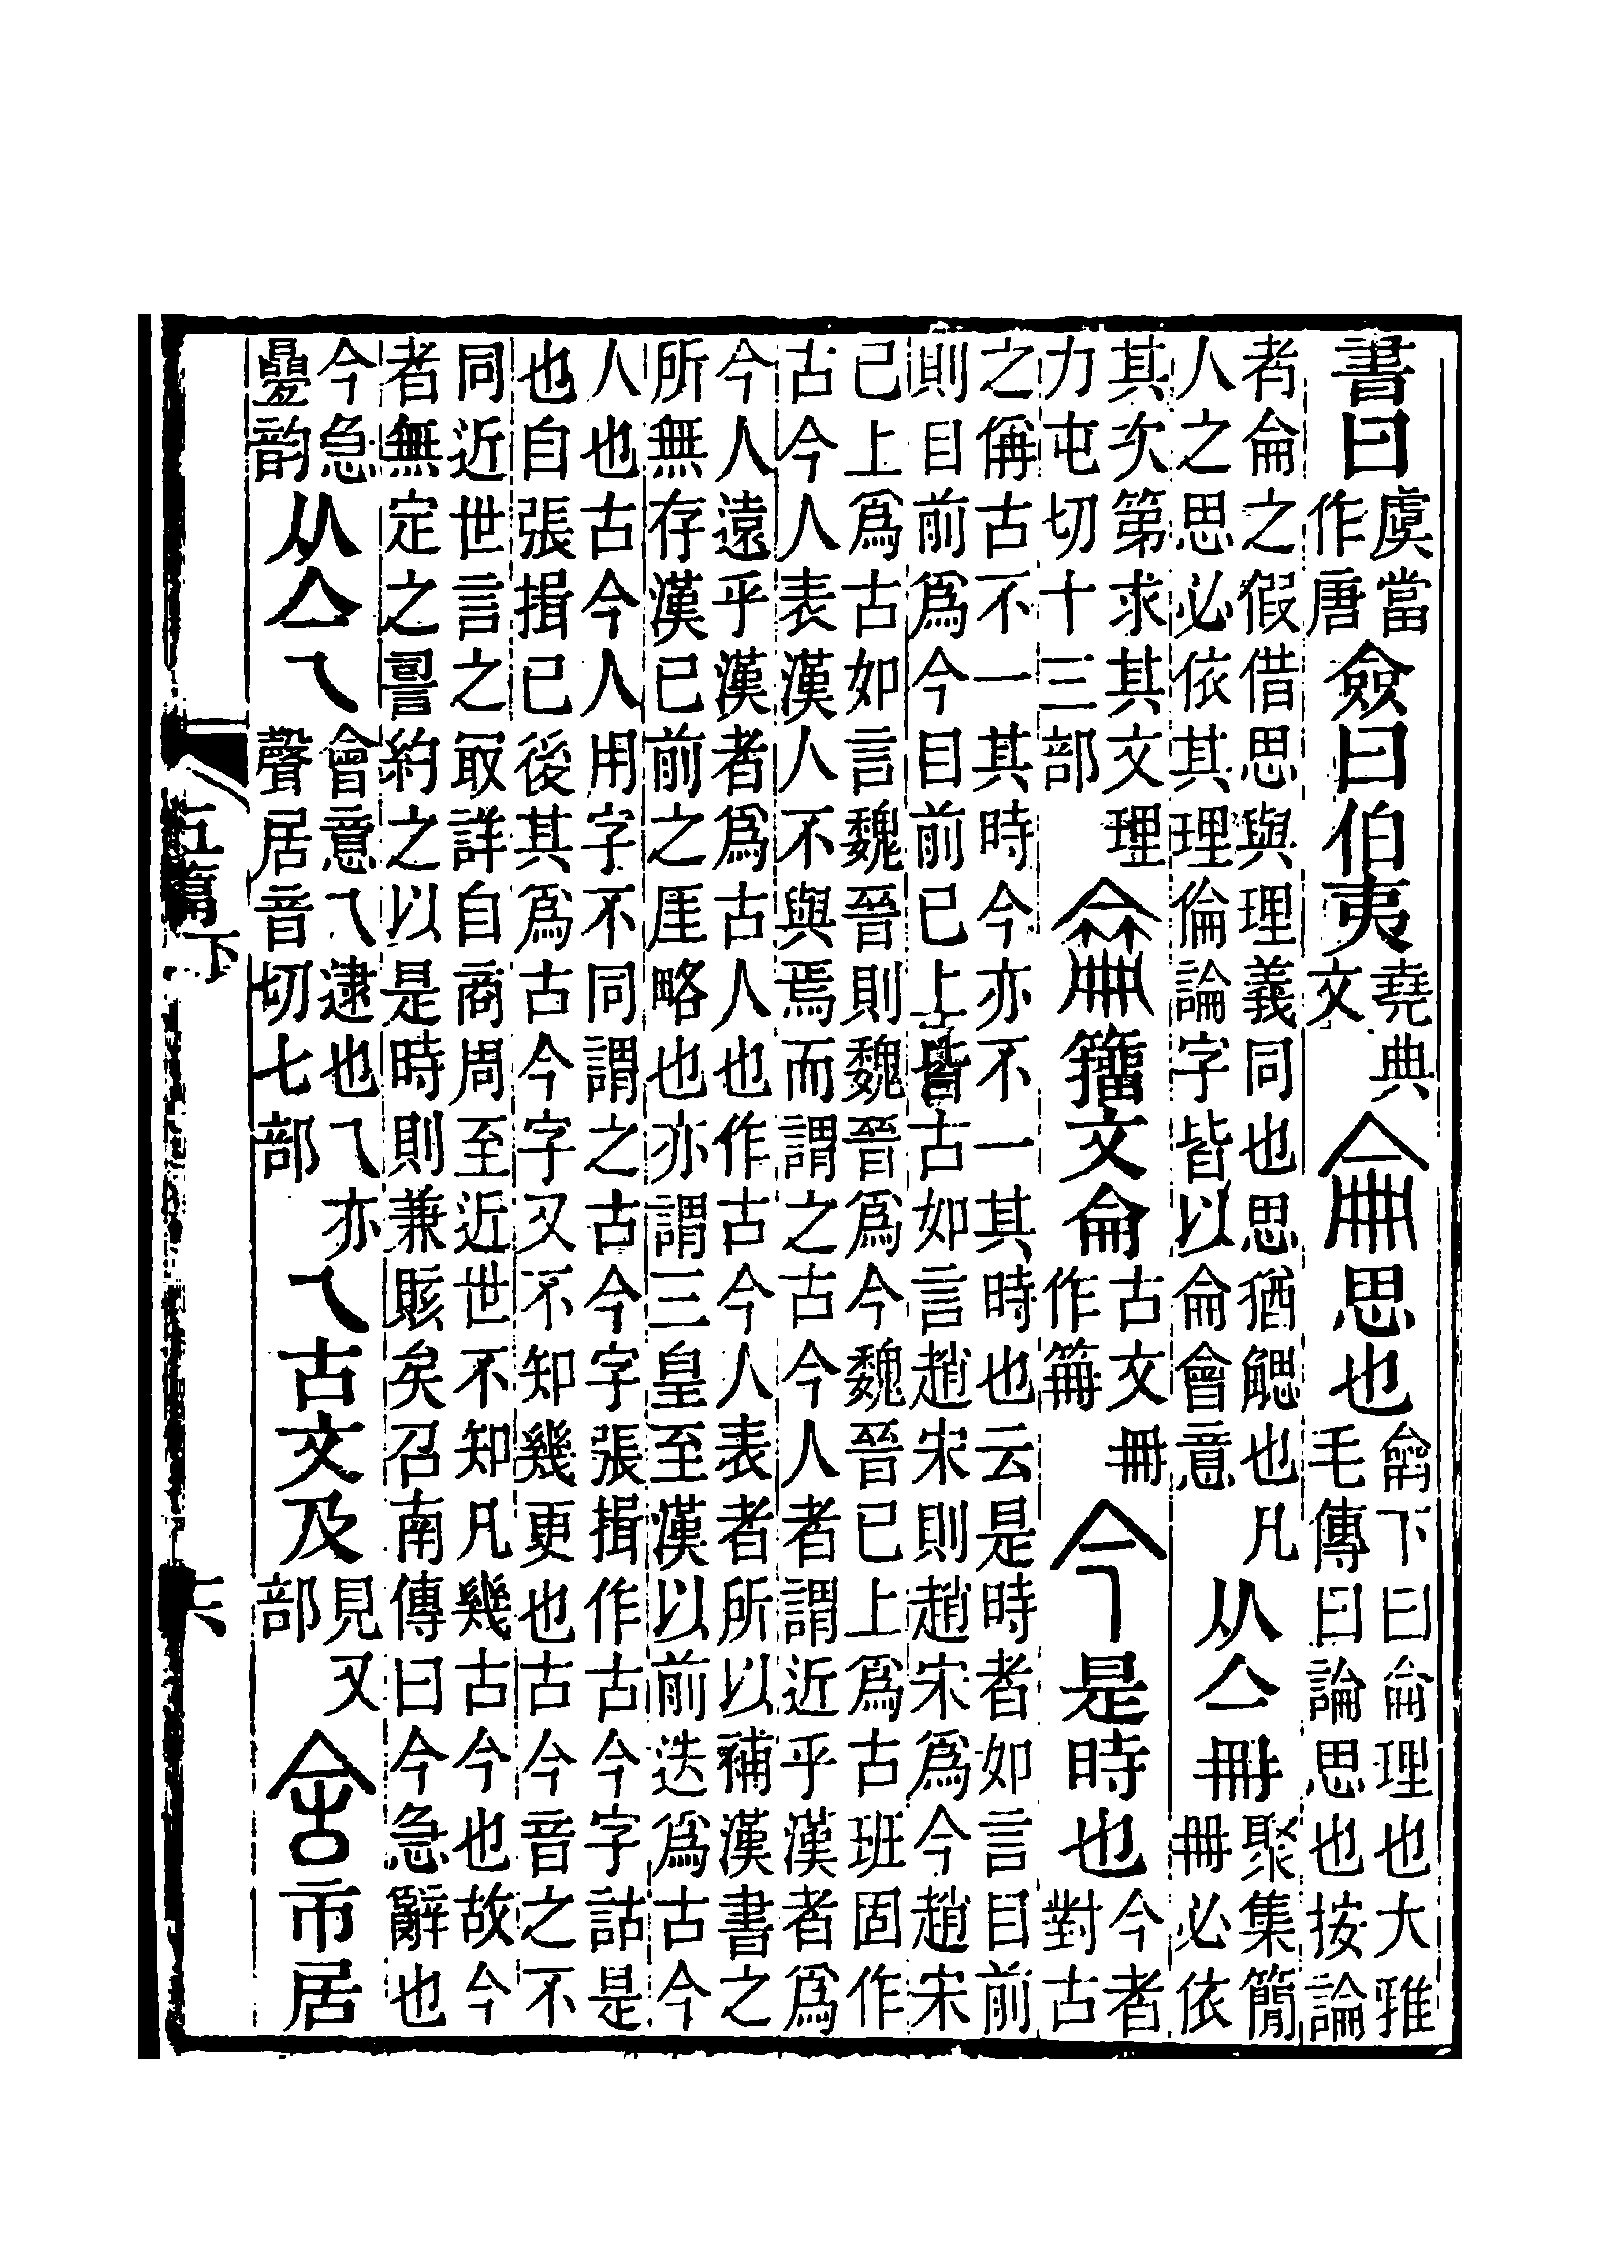 書曰虞當作唐僉曰伯夷堯典文侖思也龠下曰侖理也大雅毛傳曰論思也按論
者侖之假借思與理義同也思猶䚡也凡人之思必依其理倫論字皆以侖會意从亼冊聚集簡冊必依
其次第求其文理力屯切十三部籒文侖古文冊作𠕋今是時也今者對古
之偁古不一其時今亦不一其時也云是時者如言目前則目前爲今目前已上皆古如言趙宋則趙宋爲今趙宋
已上爲古如言魏晉則魏晉爲今魏晉已上爲古班固作古今人表漢人不與焉而謂之古今人者謂近乎漢者爲
今人遠乎漢者爲古人也作古今人表者所以補漢書之所無存漢已前之厓略也亦謂三皇至漢以前迭爲古今
人也古今人用字不同謂之古今字張揖作古今字詁是也自張揖已後其爲古今字又不知幾更也古今音之不
同近世言之冣詳自商周至近世不知凡幾古今也故今者無定之䛐約之以是時則兼賅矣召南傳曰今急辭也
今急曡韵从亼乁會意乁逮也乁亦聲居音切七部乁古文及見又部舍市居
五篇下